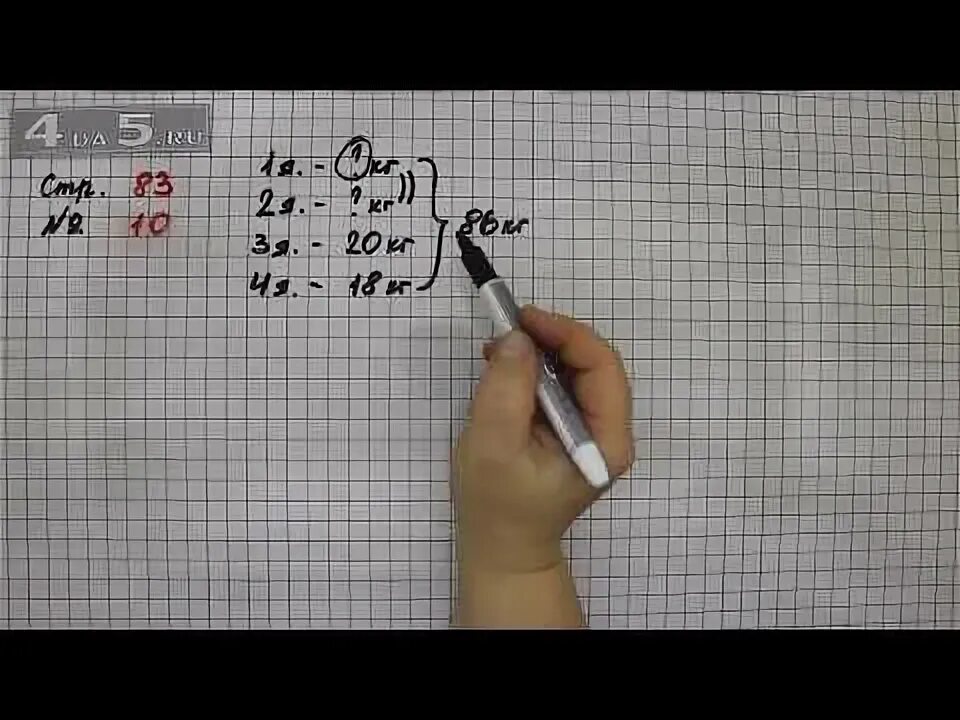 4 на 5.RU
Стр. 83
№ 10
1я. - ? кг
2я. - ? кг
3я. - 20 кг
4я. - 18 кг
86 кг